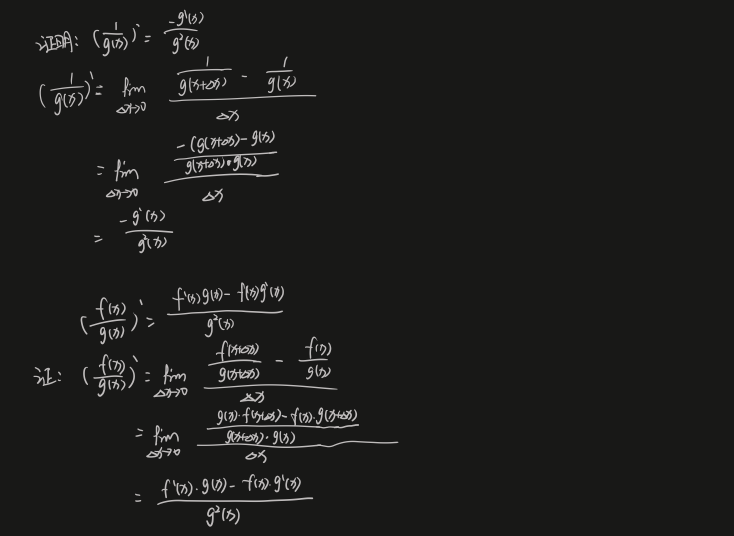 证明: (1/g(x))' = -g'(x)/g²(x)
(1/g(x))' = lim Δx→0 (1/g(x+Δx) - 1/g(x))/Δx
= lim Δx→0 (-(g(x+Δx)-g(x)/g(x+Δx)·g(x))/Δx
= -g'(x)/g²(x)
(f(x)/g(x))' = f'(x)g(x)-f(x)g'(x)/g²(x)
证: (f(x)/g(x))' = lim Δx→0 (f(x+Δx)/g(x+Δx) - f(x)/g(x))/Δx
= lim Δx→0 (g(x)·f(x+Δx)-f(x)·g(x+Δx)/g(x+Δx)·g(x))/Δx
= f'(x)·g(x)-f(x)·g'(x)/g²(x)